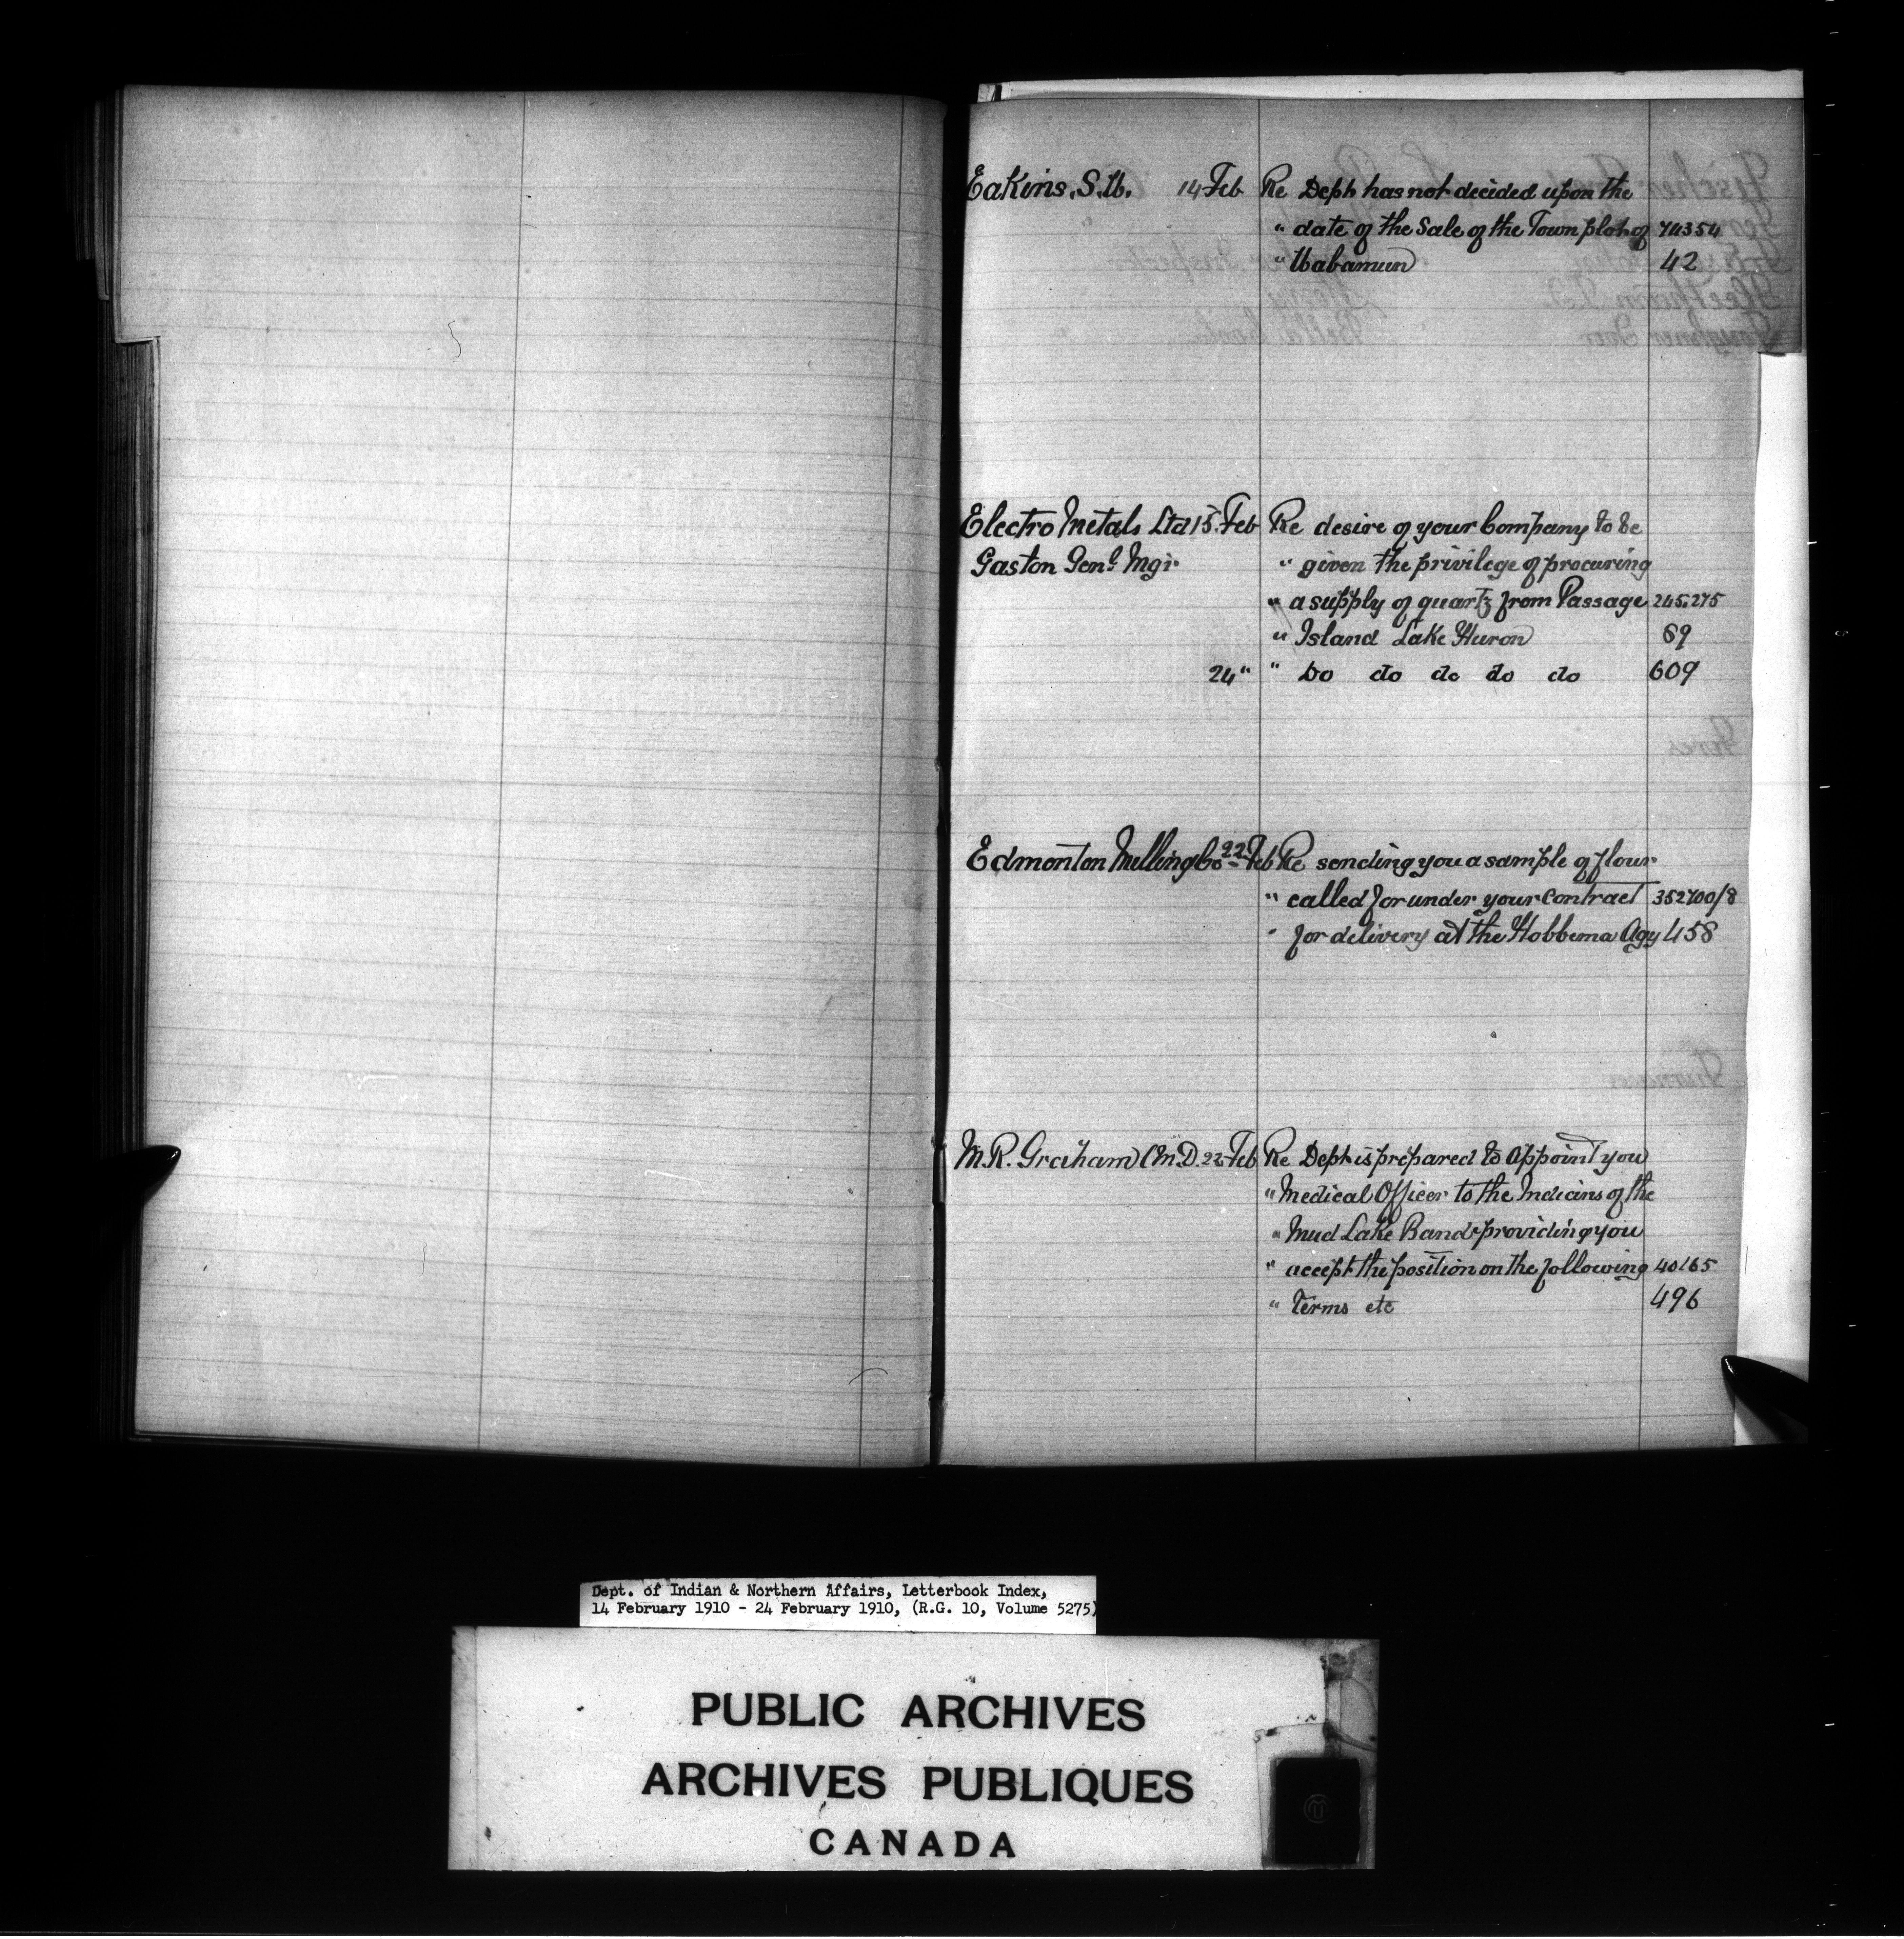 Eakins, S.W. 14 Feb Re Dept has not decided upon the
" date of the Sale of the Town plot of 74354
" Wabamun 42
Electro Metals Ltd 15 Feb Re desire of your Company to be
Gaston Genl Mgr " given the privilege of procuring
" a supply of quartz from Passage 245.275
" Island Lake Huron 89
24 " " Do do do do do 609
Edmonton Milling Co 22 Feb Re sending you a sample of flour
" called for under your contract 352700/8
" for delivery at the Hobbema Agy 458
M.R. Graham M.D. 22 Feb Re Dept is prepared to appoint you
" Medical Officer to the Indians of the
" Mud Lake Band providing you
" accept the position on the following 40165
" Terms etc 496
Dept. of Indian & Northern Affairs, Letterbook Index,
14 February 1910 - 24 February 1910, (R.G. 10, Volume 5275)
PUBLIC ARCHIVES
ARCHIVES PUBLIQUES
CANADA